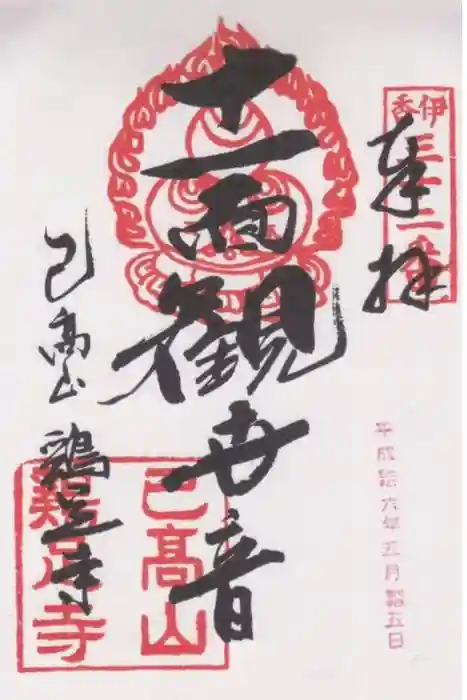 奉拝
伊香三十三番
平成拾六年五月拾五日
十一面観世音
己高山
鶏足寺
己高山
鶏足寺